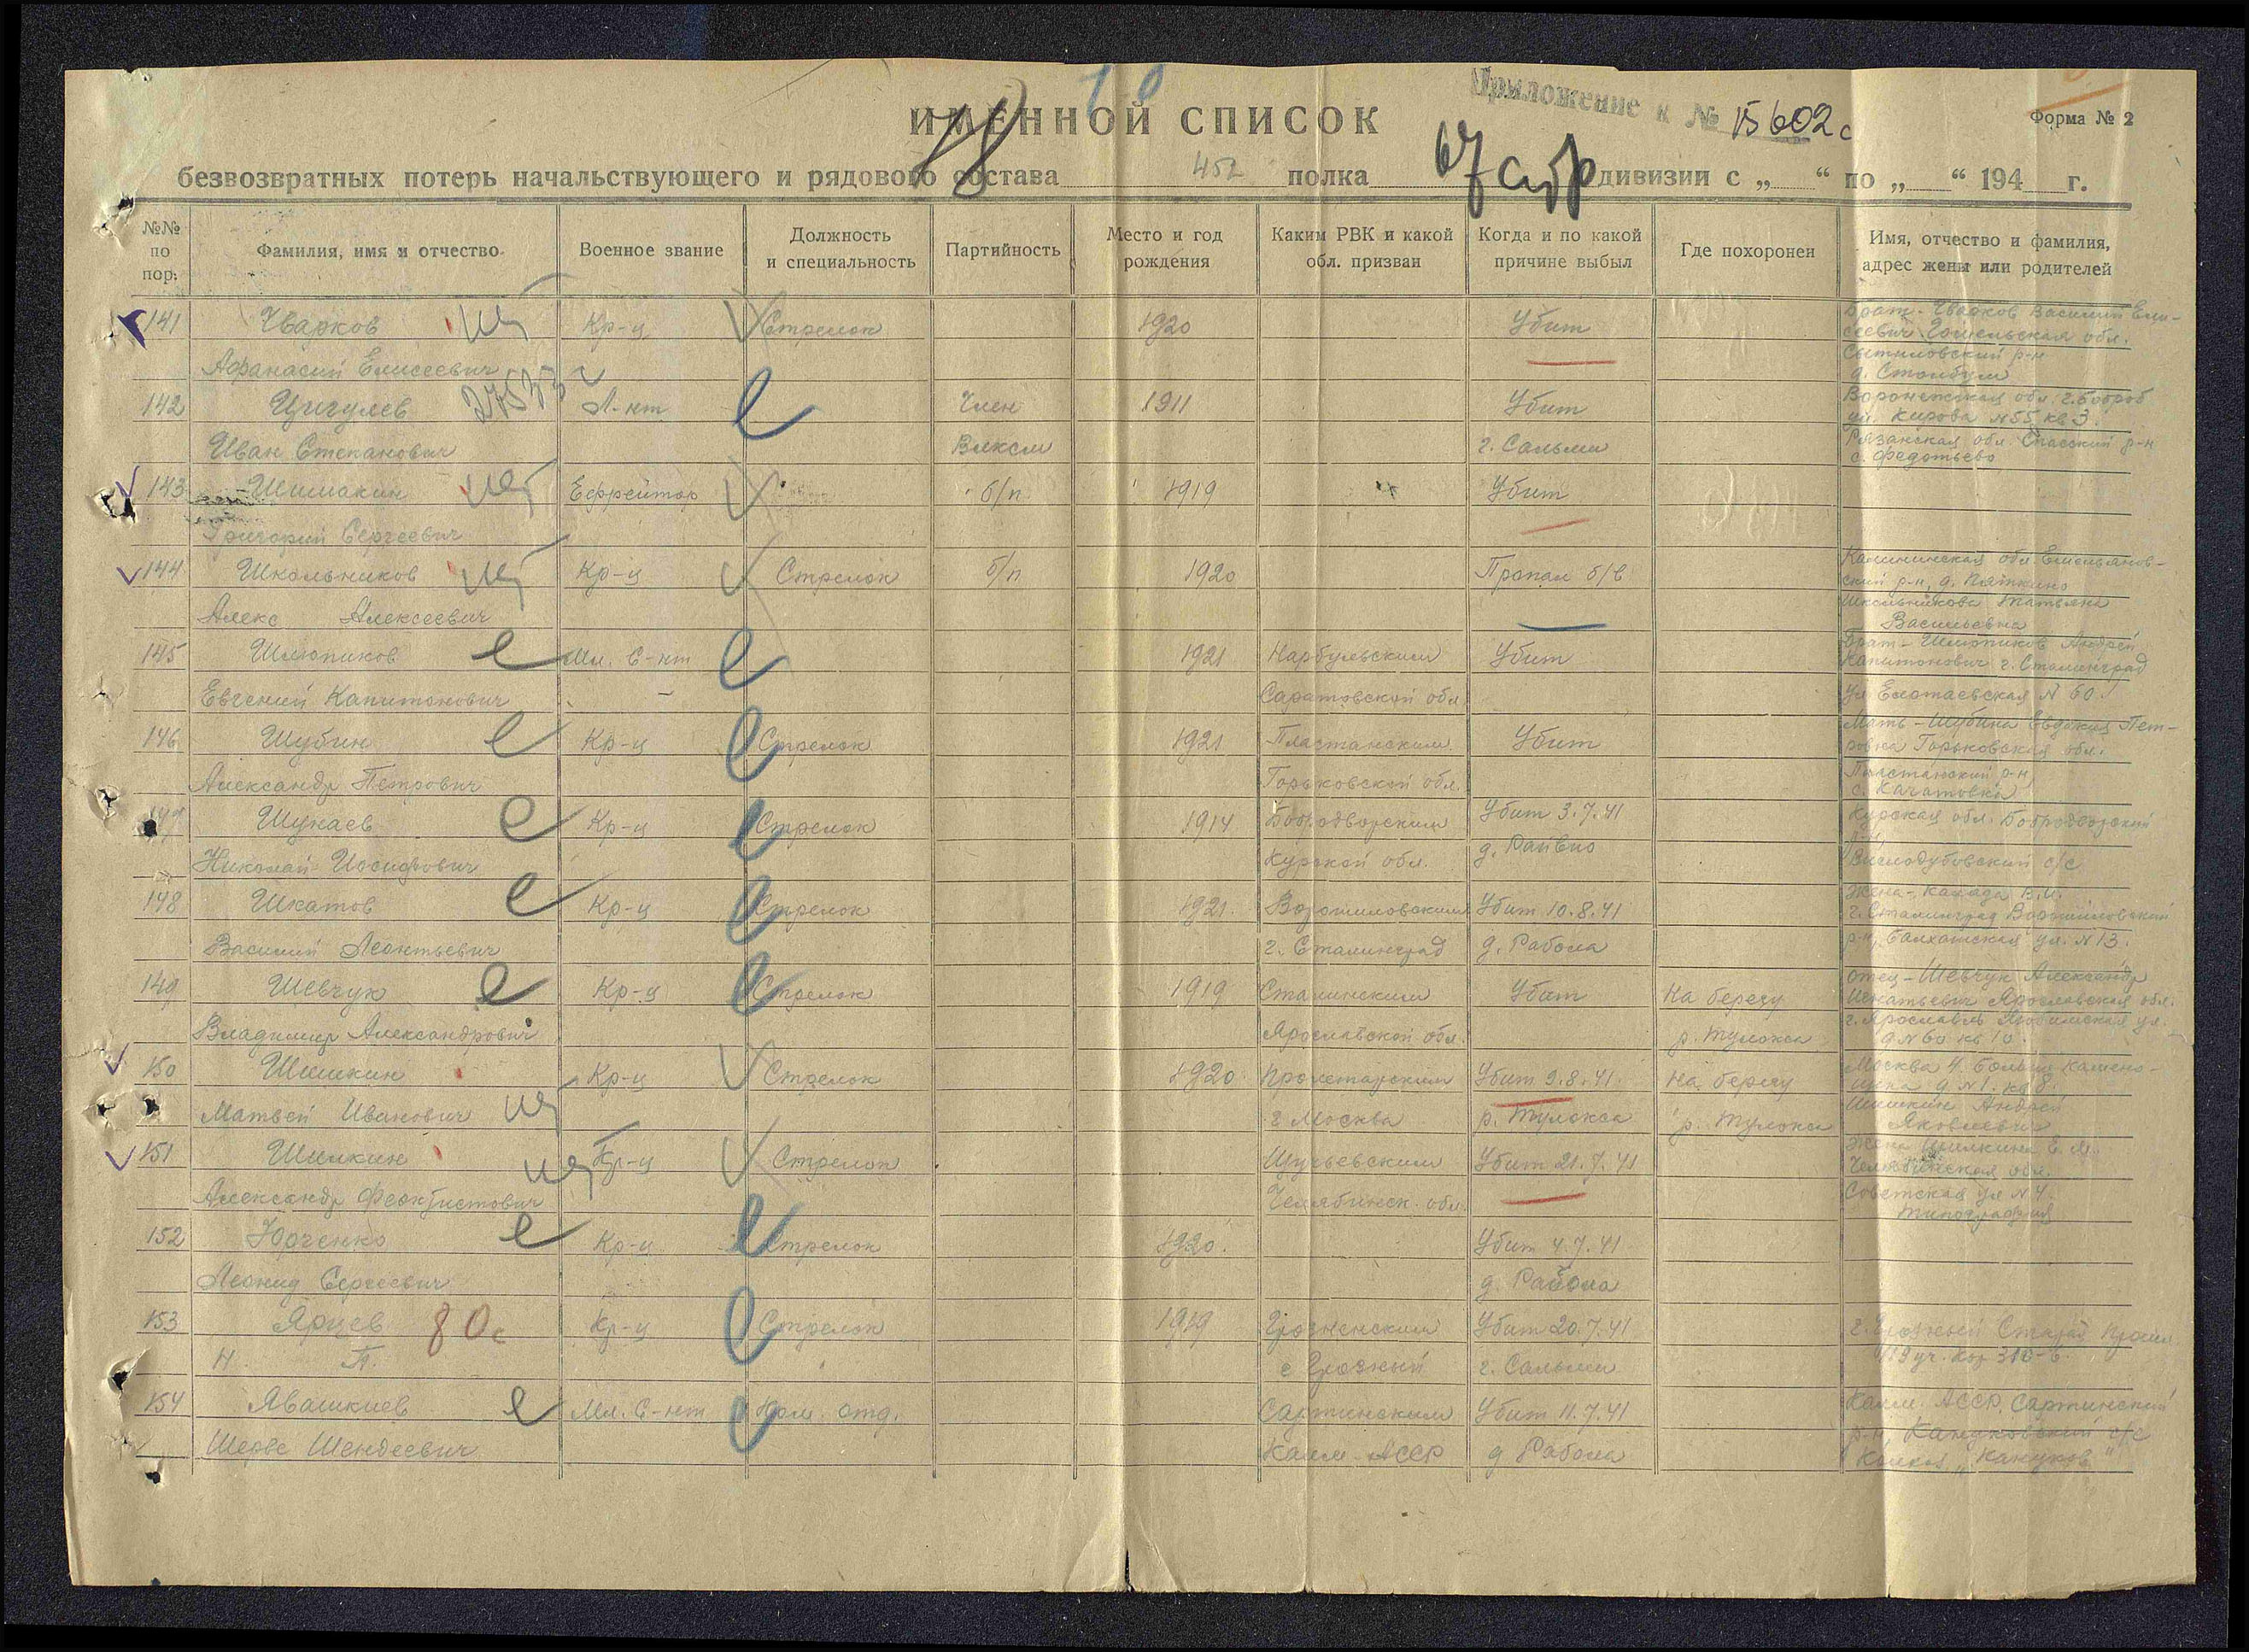 10
Приложение к № 15602с
ИМЕННОЙ СПИСОК
Форма № 2
78
безвозвратных потерь начальствующего и рядового состава 452 полка 67 сдр дивизии с „ “ по „ “ 194 г.
№№ по пор.
Фамилия, имя и отчество
Военное звание
Должность и специальность
Партийность
Место и год рождения
Каким РВК и какой обл. призван
Когда и по какой причине выбыл
Где похоронен
Имя, отчество и фамилия, адрес жены или родителей
141 Чварков Кр-ц Стрелок 1920 Убит Брат - Чварков Василий Ели-
сеевич Гомельская обл.
Афанасий Елисеевич р-н
д. Столбун
142 Цигулев 27533 Л-нт Член 1911 Убит Воронежская обл. г. Бобров
ул. Кирова № 55 кв 3.
Иван Степанович Влксм г. Сальми Рязанская обл. Спасский р-н
с. Федотьево
143 Шишакин Ефрейтор б/п 1919 Убит
Григорий Сергеевич
144 Школьников Кр-ц Стрелок б/п 1920 Пропал б/в Калининская обл. Емельянов-
ский р-н, д. Пяткино
Алекс Алексеевич Школьникова Татьяна
Васильевна
145 Шлюпиков Мл. С-нт 1921 Нарбульским Убит Брат - Шлюпиков Андрей
Капитонович г. Сталинград
Евгений Капитонович Саратовской обл. ул Елотаевская № 60.
146 Шубин Кр-ц Стрелок 1921 Убит Мать - Шубина Евдокия Пет-
ровна Горьковская обл.
Александр Петрович Горьковской обл. р-н
с. Качатовка
147 Шукаев Кр-ц Стрелок 1914 Бобродворским Убит 3.7.41 Курская обл. Бобродворский
Николай Иосифович Курской обл. д. Райвио Вислодубовский с/с
148 Шкатов Кр-ц Стрелок 1921. Ворошиловским Убит 10.8.41 Жена - В.И.
г. Сталинград Ворошиловский
Василий Леонтьевич г. Сталинград д. Рабола р-н, Балхашская ул. № 13.
149 Шевчук Кр-ц Стрелок 1919 Сталинским Убит На берегу Отец - Шевчук Александр
Игнатьевич Ярославская обл.
Владимир Александрович Ярославской обл. р. Тулокса г. Ярославль Любимская ул.
д № 60 кв 10.
150 Шишкин Кр-ц Стрелок 1920. Пролетарским Убит 9.8.41. На берегу Москва 4. Больш Камено-
д № 1. кв 8.
Матвей Иванович г Москва р. Тулокса р. Тулокса Шишкин Андрей
Яковлевич
151 Шилкин Кр-ц Стрелок Щучьевским Убит 21.7.41 Жена Шилкина Е. М.
Челябинская обл.
Александр Феоктистович Челябинск. обл. Советская ул № 4.
типография
152 Юрченко Кр-ц Стрелок 1920. Убит 4.7.41
Леонид Сергеевич д. Райвола
153 Ярцев 80с Кр-ц Стрелок 1919 Грозненским Убит 20.7.41 г. Грозный
Н. П. г Грозный г. Сальми уч. кор 310-6
154 Явашкиев Мл. С-нт Ком. отд. Сарпинским Убит 11.7.41 Калм. АССР, Сарпинский
Шерве Шендеевич Калм - АССР д Рабола р-н, Кануковский с/с
Колхоз „Кануков“